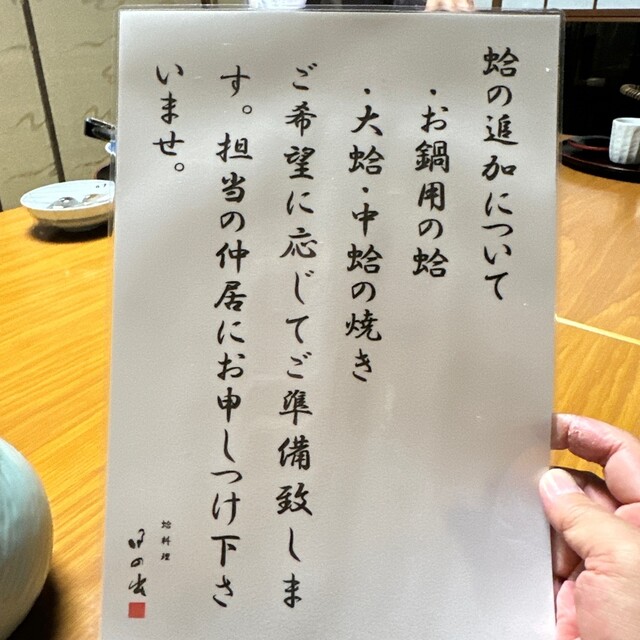 蛤の追加について
・お鍋用の蛤
・大蛤・中蛤の焼き
ご希望に応じてご準備致しま
す。担当の仲居にお申しつけ下さ
いませ。
蛤料理
日の出